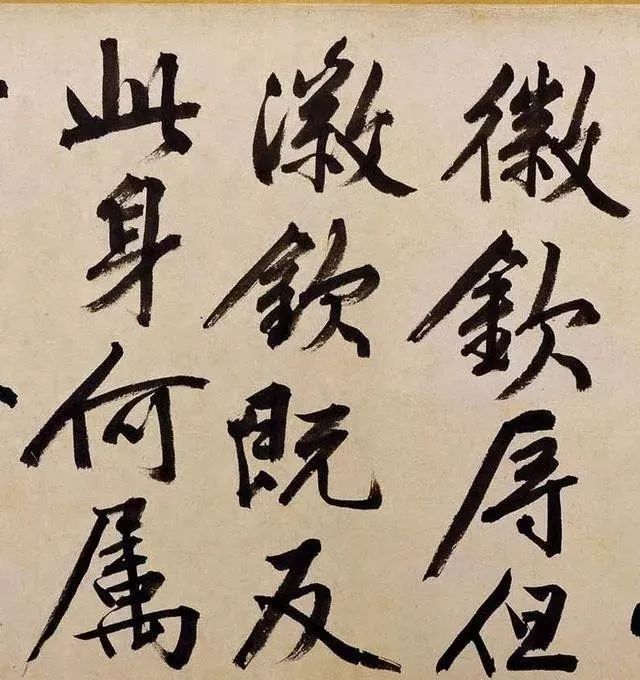 徽欽辱但
徽欽既反
此身何属